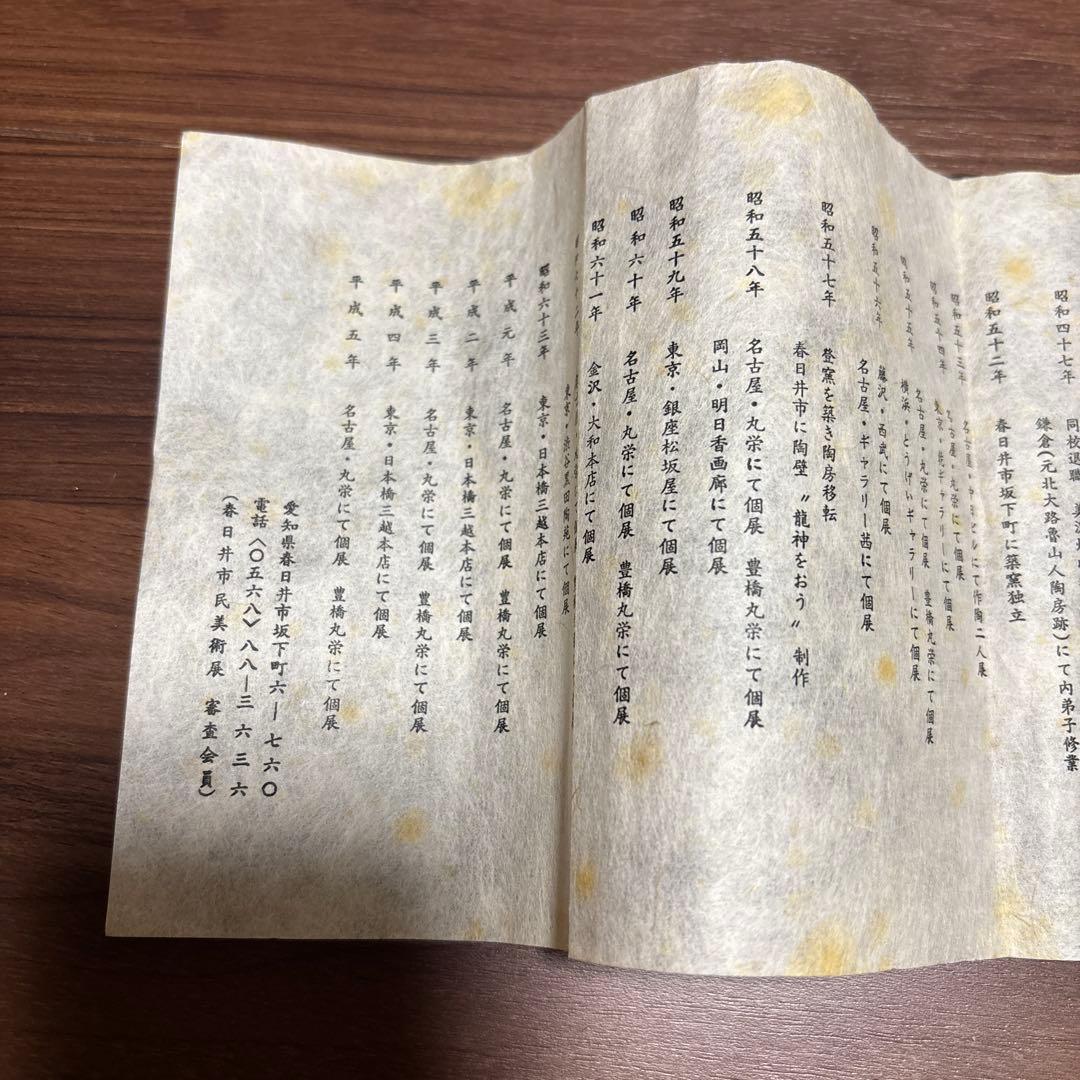 昭和四十七年
同校退職
鎌倉(元北大路魯山人陶房跡)にて内弟子修業
昭和五十二年 春日井市坂下町に築窯独立
昭和五十三年 名古屋・中日ビルにて作陶二人展
名古屋・丸栄にて個展
昭和五十四年 東京・花ギャラリーにて個展
名古屋・丸栄にて個展 豊橋丸栄にて個展
昭和五十五年 横浜・とうげいギャラリーにて個展
藤沢・西武にて個展
昭和五十六年 名古屋・ギャラリー茜にて個展
昭和五十七年 登窯を築き陶房移転
春日井市に陶壁〝龍神をおう〟制作
昭和五十八年 名古屋・丸栄にて個展 豊橋丸栄にて個展
岡山・明日香画廊にて個展
昭和五十九年 東京・銀座松坂屋にて個展
昭和六十年 名古屋・丸栄にて個展 豊橋丸栄にて個展
昭和六十一年 金沢・大和本店にて個展
東京・渋谷黒田陶苑にて個展
昭和六十三年 東京・日本橋三越本店にて個展
平成元年 名古屋・丸栄にて個展 豊橋丸栄にて個展
平成二年 東京・日本橋三越本店にて個展
平成三年 名古屋・丸栄にて個展 豊橋丸栄にて個展
平成四年 東京・日本橋三越本店にて個展
平成五年 名古屋・丸栄にて個展 豊橋丸栄にて個展
愛知県春日井市坂下町六―七六〇
電話〈〇五六八〉八八―三六三六
(春日井市民美術展 審査会員)